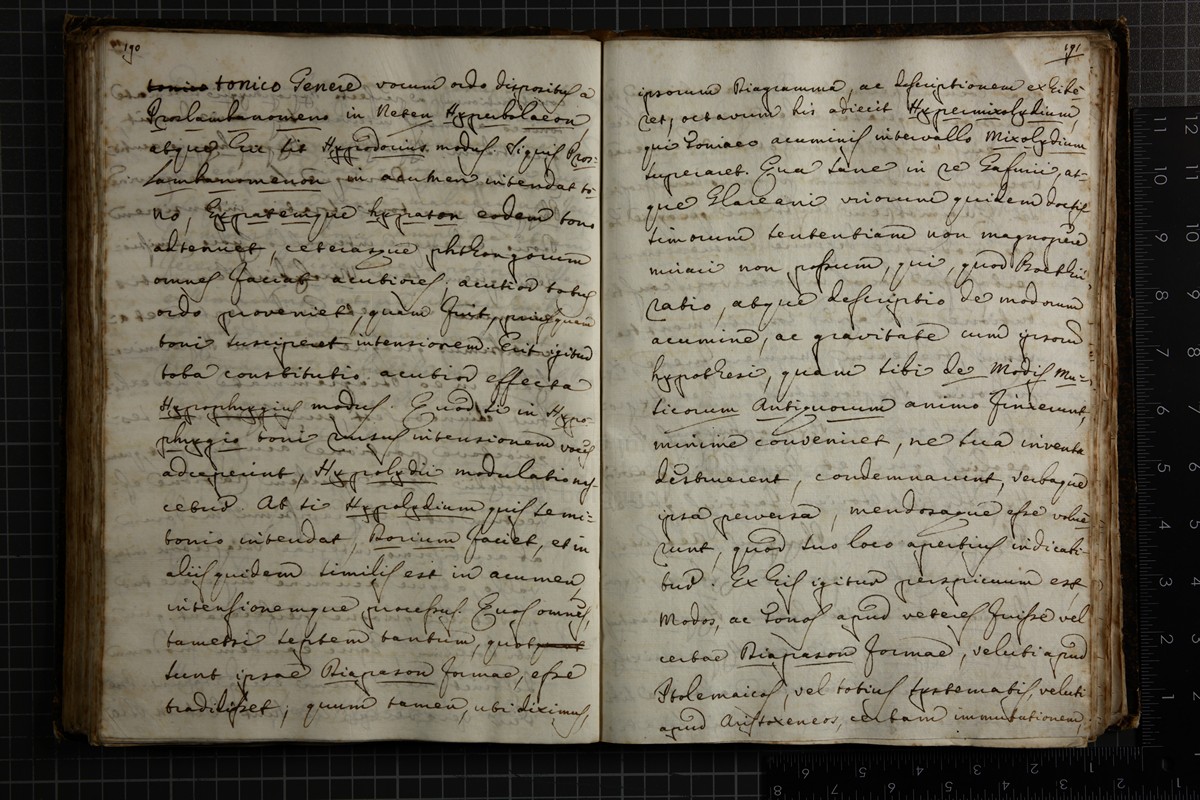 190
tonico tonico Genere vocum ordo dispositus a
Proslambanomeno in Neten Hyperbolaeon,
atque hic sit Hypodorius modus. Siquis Pros-
lambanomenon in acumen intendat to-
no, Hypatemque hypaton eodem tono
attenuet, ceterasque phthongorum
omnes faciat acutiores, acutior totus
ordo proveniet, quam fuit, priusquam
toni susciperet intensionem. Erit igitur
tota constitutio acutior effecta
Hypophrygius modus. Quod si in Hypo-
phrygio toni rursus intensionem voces
acceperint, Hypolydii modulatio nas-
cetur. At si Hypolydium quis semi-
tonio intendat, Dorium faciet, et in
aliis quidem similis est in acumen
intensionemque processus. Quos omnes,
tametsi septem tantum, quot
sunt ipsae Diapason formae, esse
tradidisset; quum tamen, ubi diximus,
191
ipsorum Diagramma, ac descriptionem exhibe-
ret, octavum his adiecit Hypermixolydium
qui toniaeo acuminis intervallo Mixolydium
superaret. Qua sane in re Gafurii, at-
que Glareani virorum quidem doctis-
simorum sententiam non magnopere
mirari non possum, qui, quod Boethii
ratio, atque descriptio de modorum
acumine, ac gravitate cum ipsorum
hypothesi, quam sibi de Modis Mu-
sicorum Antiquorum animo finxerunt,
minime conveniret, ne sua inventa
destruerent, condemnarunt, verbaque
ipsa perversa, mendosaque esse volue-
runt, quod suo loco apertius indicabi-
tur. Ex his igitur perspicuum est
Modos, ac Tonos apud veteres fuisse vel
certae Diapason formae, veluti apud
Ptolemaicos, vel totius systematis, veluti
apud Aristoxeneos, certam immutationem,